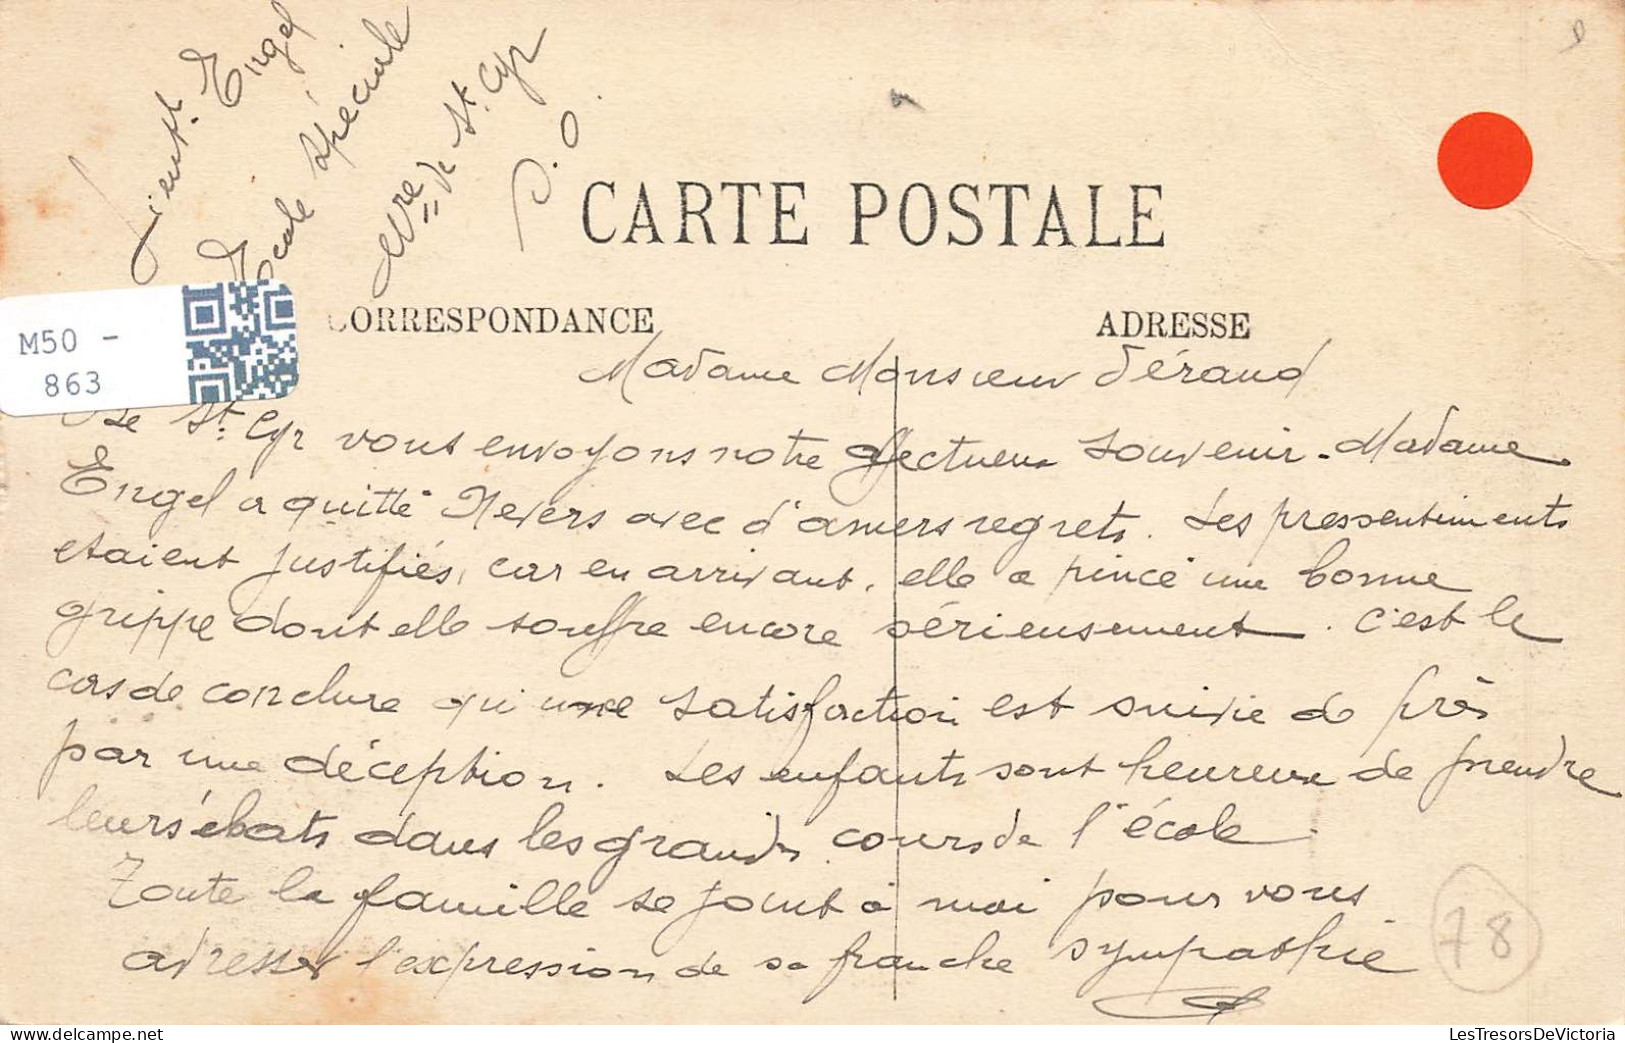 Lieut. Engel
Ecole Spéciale
Mre de St. Cyr
S. O.
CARTE POSTALE
CORRESPONDANCE
ADRESSE
M50 -
863
Madame Monsieur Déraud
De St. Cyr vous envoyons notre affectueux souvenir. Madame
Engel a quitté Nevers avec d'amers regrets. Les pressentiments
etaient justifiés, car en arrivant, elle a pincé une bonne
grippe dont elle souffre encore sérieusement. C'est le
cas de conclure qu'une satisfaction est suivie de près
par une déception. Les enfants sont heureux de prendre
leurs ébats dans les grandes cours de l'école.
Toute la famille se joint à moi pour vous
adresser l'expression de sa franche sympathie
78
LesTresorsDeVictoria